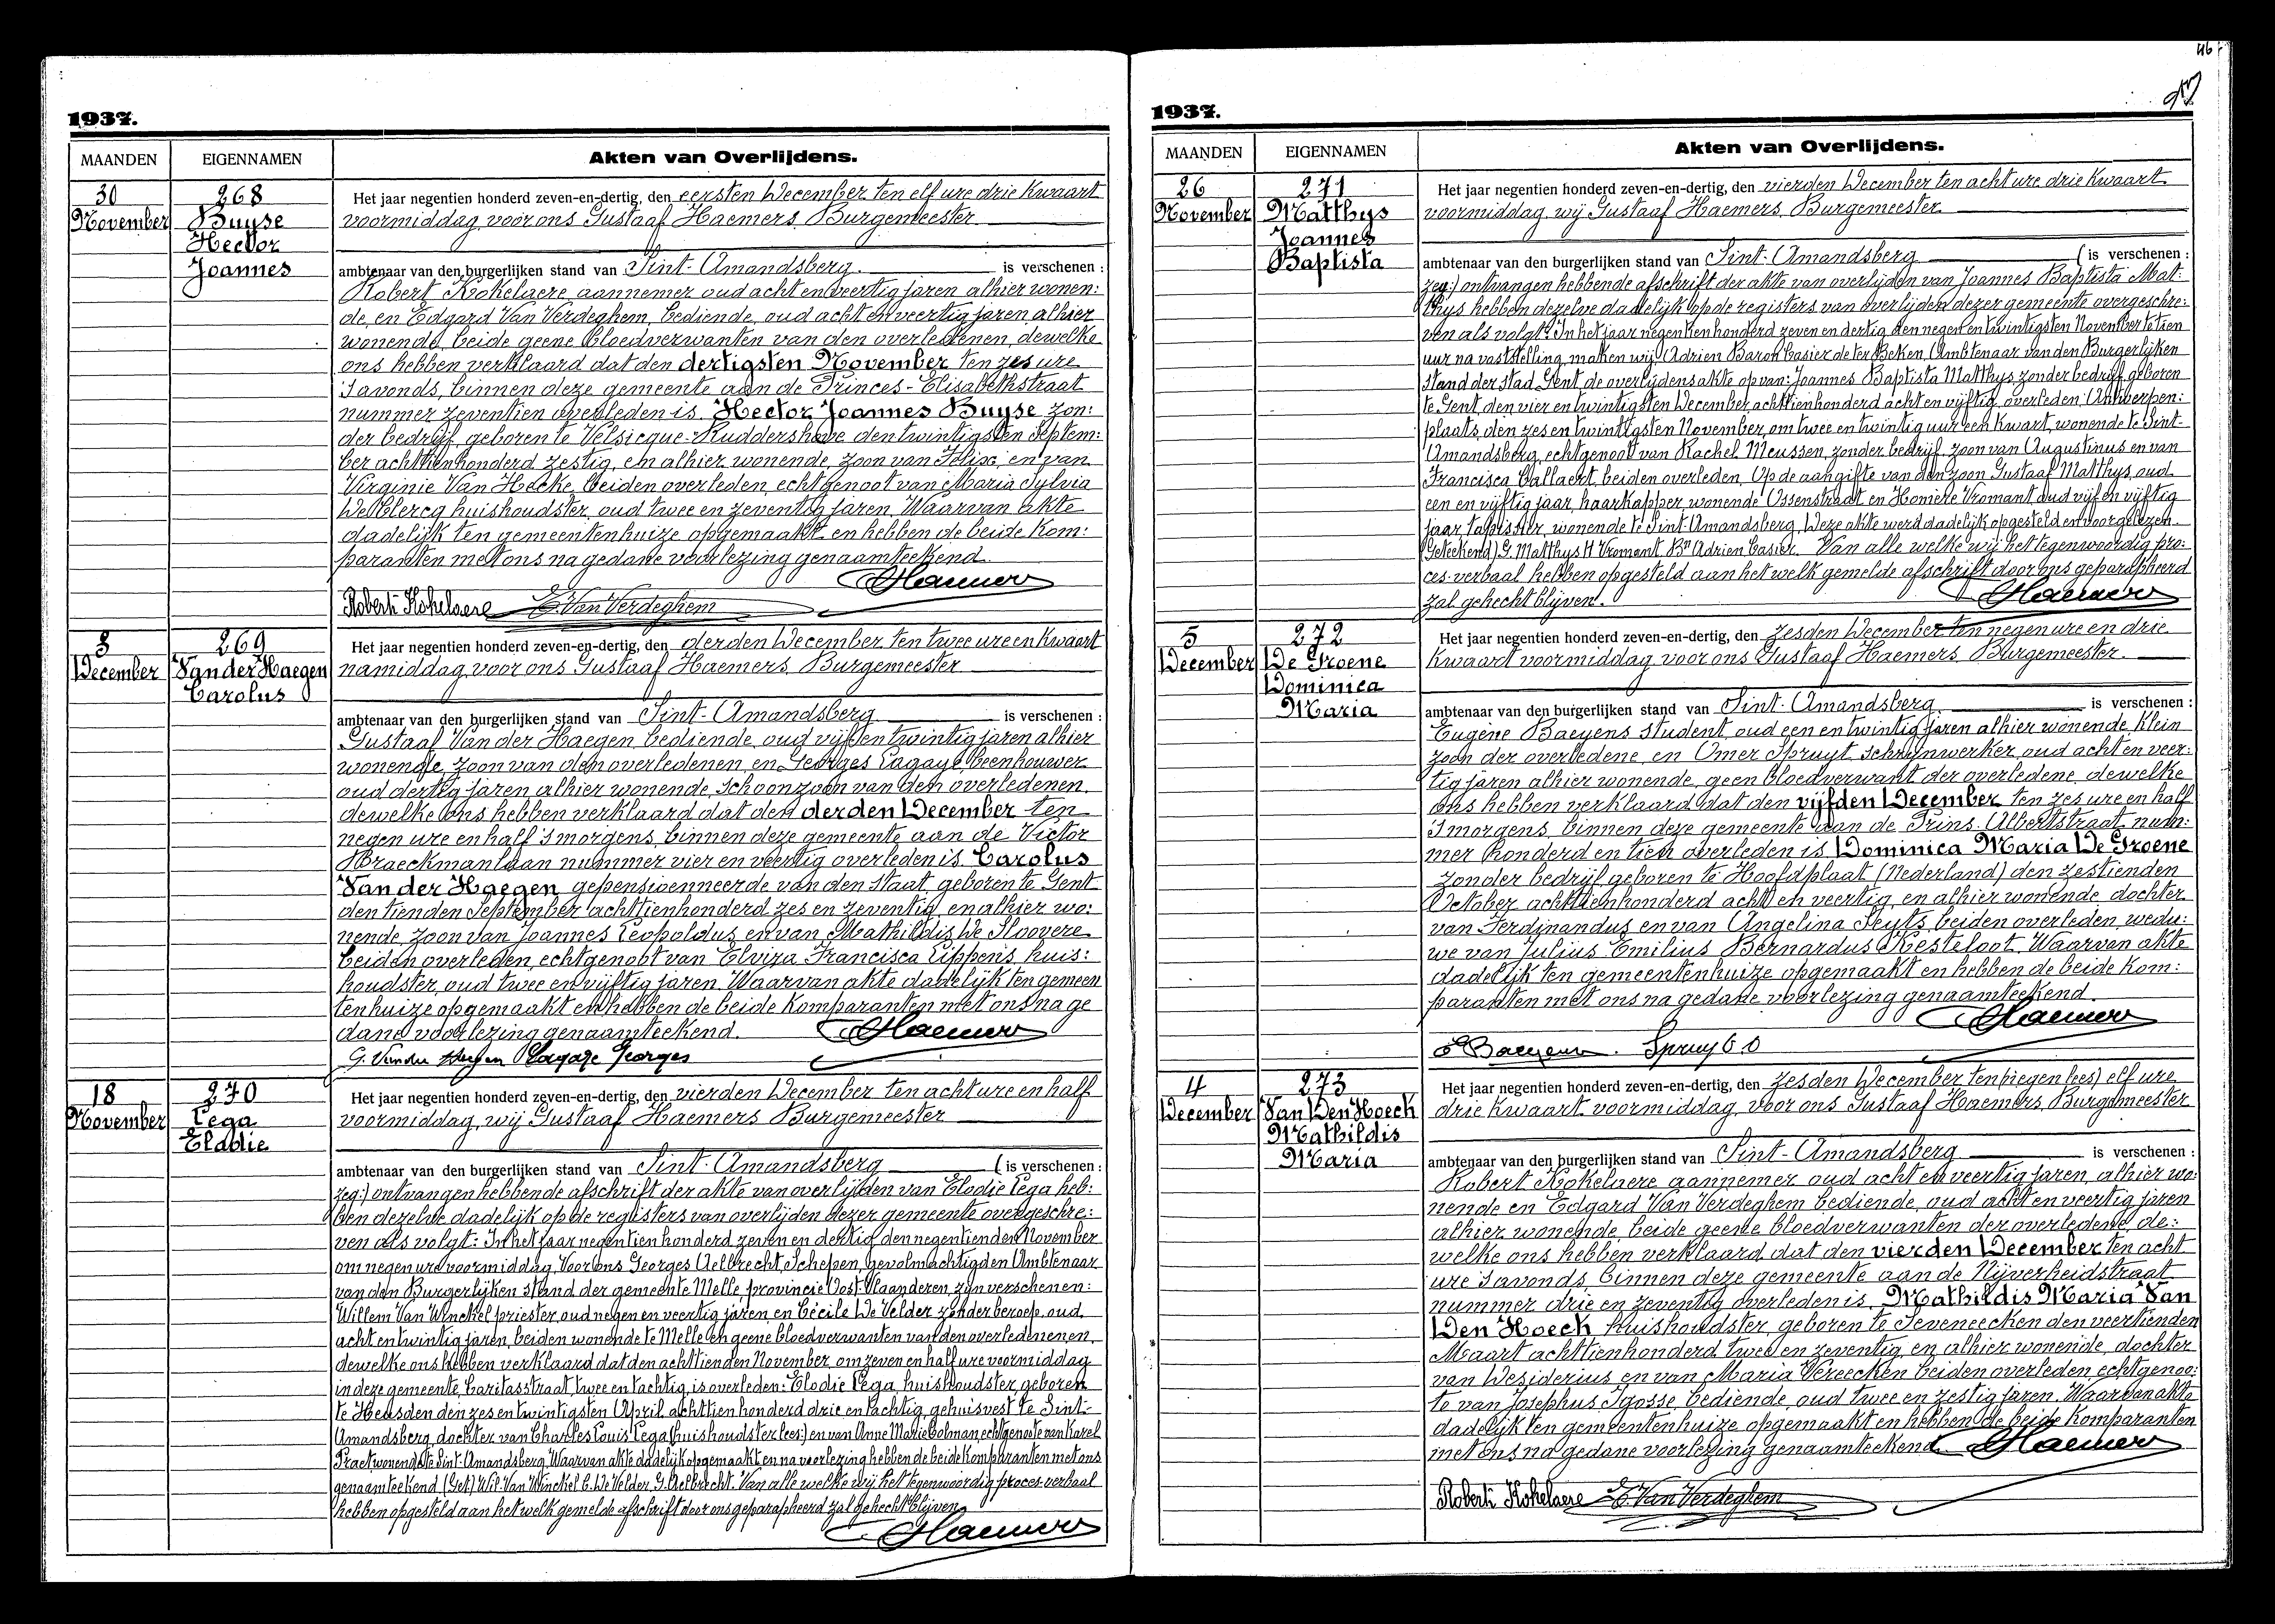 1937.
MAANDEN
EIGENNAMEN
Akten van Overlijdens.
30
November
268
Buyse
Hector
Joannes
Het jaar negentien honderd zeven-en-dertig, den eersten December ten elf ure drie kwaart
voormiddag voor ons Gustaaf Haemers Burgemeester
ambtenaar van den burgerlijken stand van Sint-Amandsberg. is verschenen :
Robert Kokelaere aannemer oud acht en veertig jaren alhier wonen:
de, en Edgard Van Verdeghem, bediende, oud acht en veertig jaren alhier
wonende, beide geene bloedverwanten van den overledenen, dewelke
ons hebben verklaard dat den dertigsten November ten zes ure
's avonds, binnen deze gemeente aan de Princes-Elisabethstraat
nummer zeventien overleden is Hector Joannes Buyse zon:
der bedrijf, geboren te Velsicque-Ruddershove den twintigsten Septem:
ber achttienhonderd zestig, en alhier wonende, zoon van Felix, en van
Virginie Van Hecke, beiden overleden, echtgenoot van Maria Sylvia
De Clercq huishoudster, oud twee en zeventig jaren. Waarvan akte
dadelijk ten gemeentenhuize opgemaakt en hebben de beide kom:
paranten met ons na gedane voorlezing genaamteekend.
Haemers
Robert Kokelaere E. Van Verdeghem
3
December
269
Van der Haegen
Carolus
Het jaar negentien honderd zeven-en-dertig, den derden December ten twee ure en kwaart
namiddag, voor ons Gustaaf Haemers Burgemeester
ambtenaar van den burgerlijken stand van Sint-Amandsberg is verschenen :
Gustaaf Van der Haegen, bediende, oud vijf en twintig jaren alhier
wonende, zoon van den overledenen, en Georges Lagaye, beenhouwer
oud dertig jaren alhier wonende, schoonzoon van den overledenen,
dewelke ons hebben verklaard dat den derden December ten
negen ure en half 's morgens, binnen deze gemeente aan de Victor
Braeckmanlaan nummer vier en veertig overleden is Carolus
Van der Haegen gepensioenneerde van den staat, geboren te Gent
den tienden September achttienhonderd zes en zeventig, en alhier wo:
nende, zoon van Joannes Leopoldus, en van Mathildis De Sloovere
beiden overleden, echtgenoot van Elvira Francisca Lippens, huis:
houdster, oud twee en vijftig jaren. Waarvan akte dadelijk ten gemeen
tenhuize opgemaakt en hebben de beide komparanten met ons na ge
dane voorlezing genaamteekend. Haemers
G. Vander Haegen Lagaye Georges
18
November
270
Lega
Elodie
Het jaar negentien honderd zeven-en-dertig, den vierden December ten acht ure en half
voormiddag, wij Gustaaf Haemers Burgemeester
ambtenaar van den burgerlijken stand van Sint-Amandsberg ( is verschenen :
zeg:) ontvangen hebbende afschrift der akte van overlijden van Elodie Lega heb:
ben dezelve dadelijk op de registers van overlijden dezer gemeente overgeschre:
ven als volgt: In het jaar negentien honderd zeven en dertig den negentienden November
om negen ure voormiddag, Voor ons Georges Aelbrecht, Schepen, gevolmachtigden Ambtenaar
van den Burgerlijken stand der gemeente Melle provincie Oost-Vlaanderen, zijn verschenen:
Willem Van Winckel priester, oud negen en veertig jaren, en Cécile De Velder zonder beroep, oud
acht en twintig jaren, beiden wonende te Melle en geene bloedverwanten van den overledenenen,
dewelke ons hebben verklaard dat den achttienden November, om zeven en half ure voormiddag
in deze gemeente, Caritasstraat, twee en tachtig, is overleden: Elodie Lega, huishoudster, geboren
te Heusden den zes en twintigsten April achttienhonderd drie en tachtig, gehuisvest te Sint-
Amandsberg, dochter van Charles Louis Lega (huishoudster lees:) en van Anne Marie Colman, echtgenote van Karel
Praet, wonende te Sint-Amandsberg. Waarvan akte dadelijk opgemaakt en na voorlezing hebben de beide komparanten met ons
genaamteekend. (Get.) Wil. Van Winckel C. De Velder, G. Aelbrecht. Van alle welke wij het tegenwoordig proces-verbaal
hebben opgesteld aan het welk gemelde afschrift door ons geparapheerd zal gehecht blijven.
Haemers
46
1937.
MAANDEN
EIGENNAMEN
Akten van Overlijdens.
26
November
271
Matthys
Joannes
Baptista
Het jaar negentien honderd zeven-en-dertig, den vierden December ten acht ure drie kwaart
voormiddag, wij Gustaaf Haemers Burgemeester
ambtenaar van den burgerlijken stand van Sint-Amandsberg ( is verschenen :
zeg:) ontvangen hebbende afschrift der akte van overlijden van Joannes Baptista Mat:
thys hebben dezelve dadelijk op de registers van overlijden dezer gemeente overgeschre:
ven als volgt: In het jaar negentienhonderd zeven en dertig den negen en twintigsten November te tien
uur na vaststelling, maken wij, Adrien Baron Casier de ter Beken, Ambtenaar van den Burgerlijken
stand der stad Gent, de overlijdensakte op van: Joannes Baptista Matthys zonder bedrijf, geboren
te Gent, den vier en twintigsten December achttienhonderd acht en vijftig, overleden, Antwerpen:
plaats, den zes en twintigsten November, om twee en twintig uur een kwart, wonende te Sint-
Amandsberg, echtgenoot van Rachel Meussen, zonder bedrijf, zoon van Augustinus en van
Francisca Callaert, beiden overleden. Op de aangifte van den zoon Gustaaf Matthys, oud
een en vijftig jaar, haarkapper, wonende Ossenstraat en Homère Vromant oud vijf en vijftig
jaar, tapissier, wonende te Sint Amandsberg. Deze akte werd dadelijk opgesteld en voorgelezen.
(Geteekend) G. Matthys H Vromant Bn Adrien Casier. Van alle welke wij het tegenwoordig pro:
ces-verbaal hebben opgesteld aan het welk gemelde afschrift door ons geparapheerd
zal gehecht blijven. Haemers
5
December
272
De Groene
Dominica
Maria
Het jaar negentien honderd zeven-en-dertig, den zesden December ten negen ure en drie
kwaart voormiddag voor ons Gustaaf Haemers Burgemeester.
ambtenaar van den burgerlijken stand van Sint-Amandsberg is verschenen :
Eugène Baeyens student, oud een en twintig jaren alhier wonende, klein
zoon der overledene, en Omer Spruyt schrijnwerker, oud acht en veer:
tig jaren alhier wonende, geen bloedverwant der overledene, dewelke
ons hebben verklaard dat den vijfden December ten zes ure en half
's morgens, binnen deze gemeente aan de Prins Albertstraat num:
mer honderd en tien overleden is Dominica Maria De Groene
zonder bedrijf geboren te Hoofdplaat (Nederland) den zestienden
October achttienhonderd acht en veertig, en alhier wonende, dochter
van Ferdinandus en van Angelina Seyts, beiden overleden, wedu:
we van Julius Emilius Bernardus Kesteloot. Waarvan akte
dadelijk ten gemeentenhuize opgemaakt en hebben de beide kom:
paranten met ons na gedane voorlezing genaamteekend.
Haemers
E Baeyens. Spruyt O
4
December
273
Van Den Hoeck
Mathildis
Maria
Het jaar negentien honderd zeven-en-dertig, den zesden December ten (negen lees) elf ure
drie kwaart voormiddag, voor ons Gustaaf Haemers Burgemeester
ambtenaar van den burgerlijken stand van Sint-Amandsberg is verschenen :
Robert Kokelaere aannemer oud acht en veertig jaren, alhier wo:
nende en Edgard Van Verdeghem bediende, oud acht en veertig jaren
alhier wonende, beide geene bloedverwanten der overledene, de:
welke ons hebben verklaard dat den vierden December ten acht
ure 's avonds, binnen deze gemeente aan de Nijverheidstraat
nummer drie en zeventig overleden is Mathildis Maria Van
Den Hoeck huishoudster, geboren te Seveneecken den veertienden
Maart achttienhonderd twee en zeventig, en alhier wonende, dochter
van Desiderius en van Maria Vereecken beiden overleden, echtgenoo:
te van Josephus Igosse, bediende, oud twee en zestig jaren. Waarvan akte
dadelijk ten gemeentenhuize opgemaakt en hebben de beide komparanten
met ons na gedane voorlezing genaamteekend. Haemers
Robert Kokelaere E. Van Verdeghem